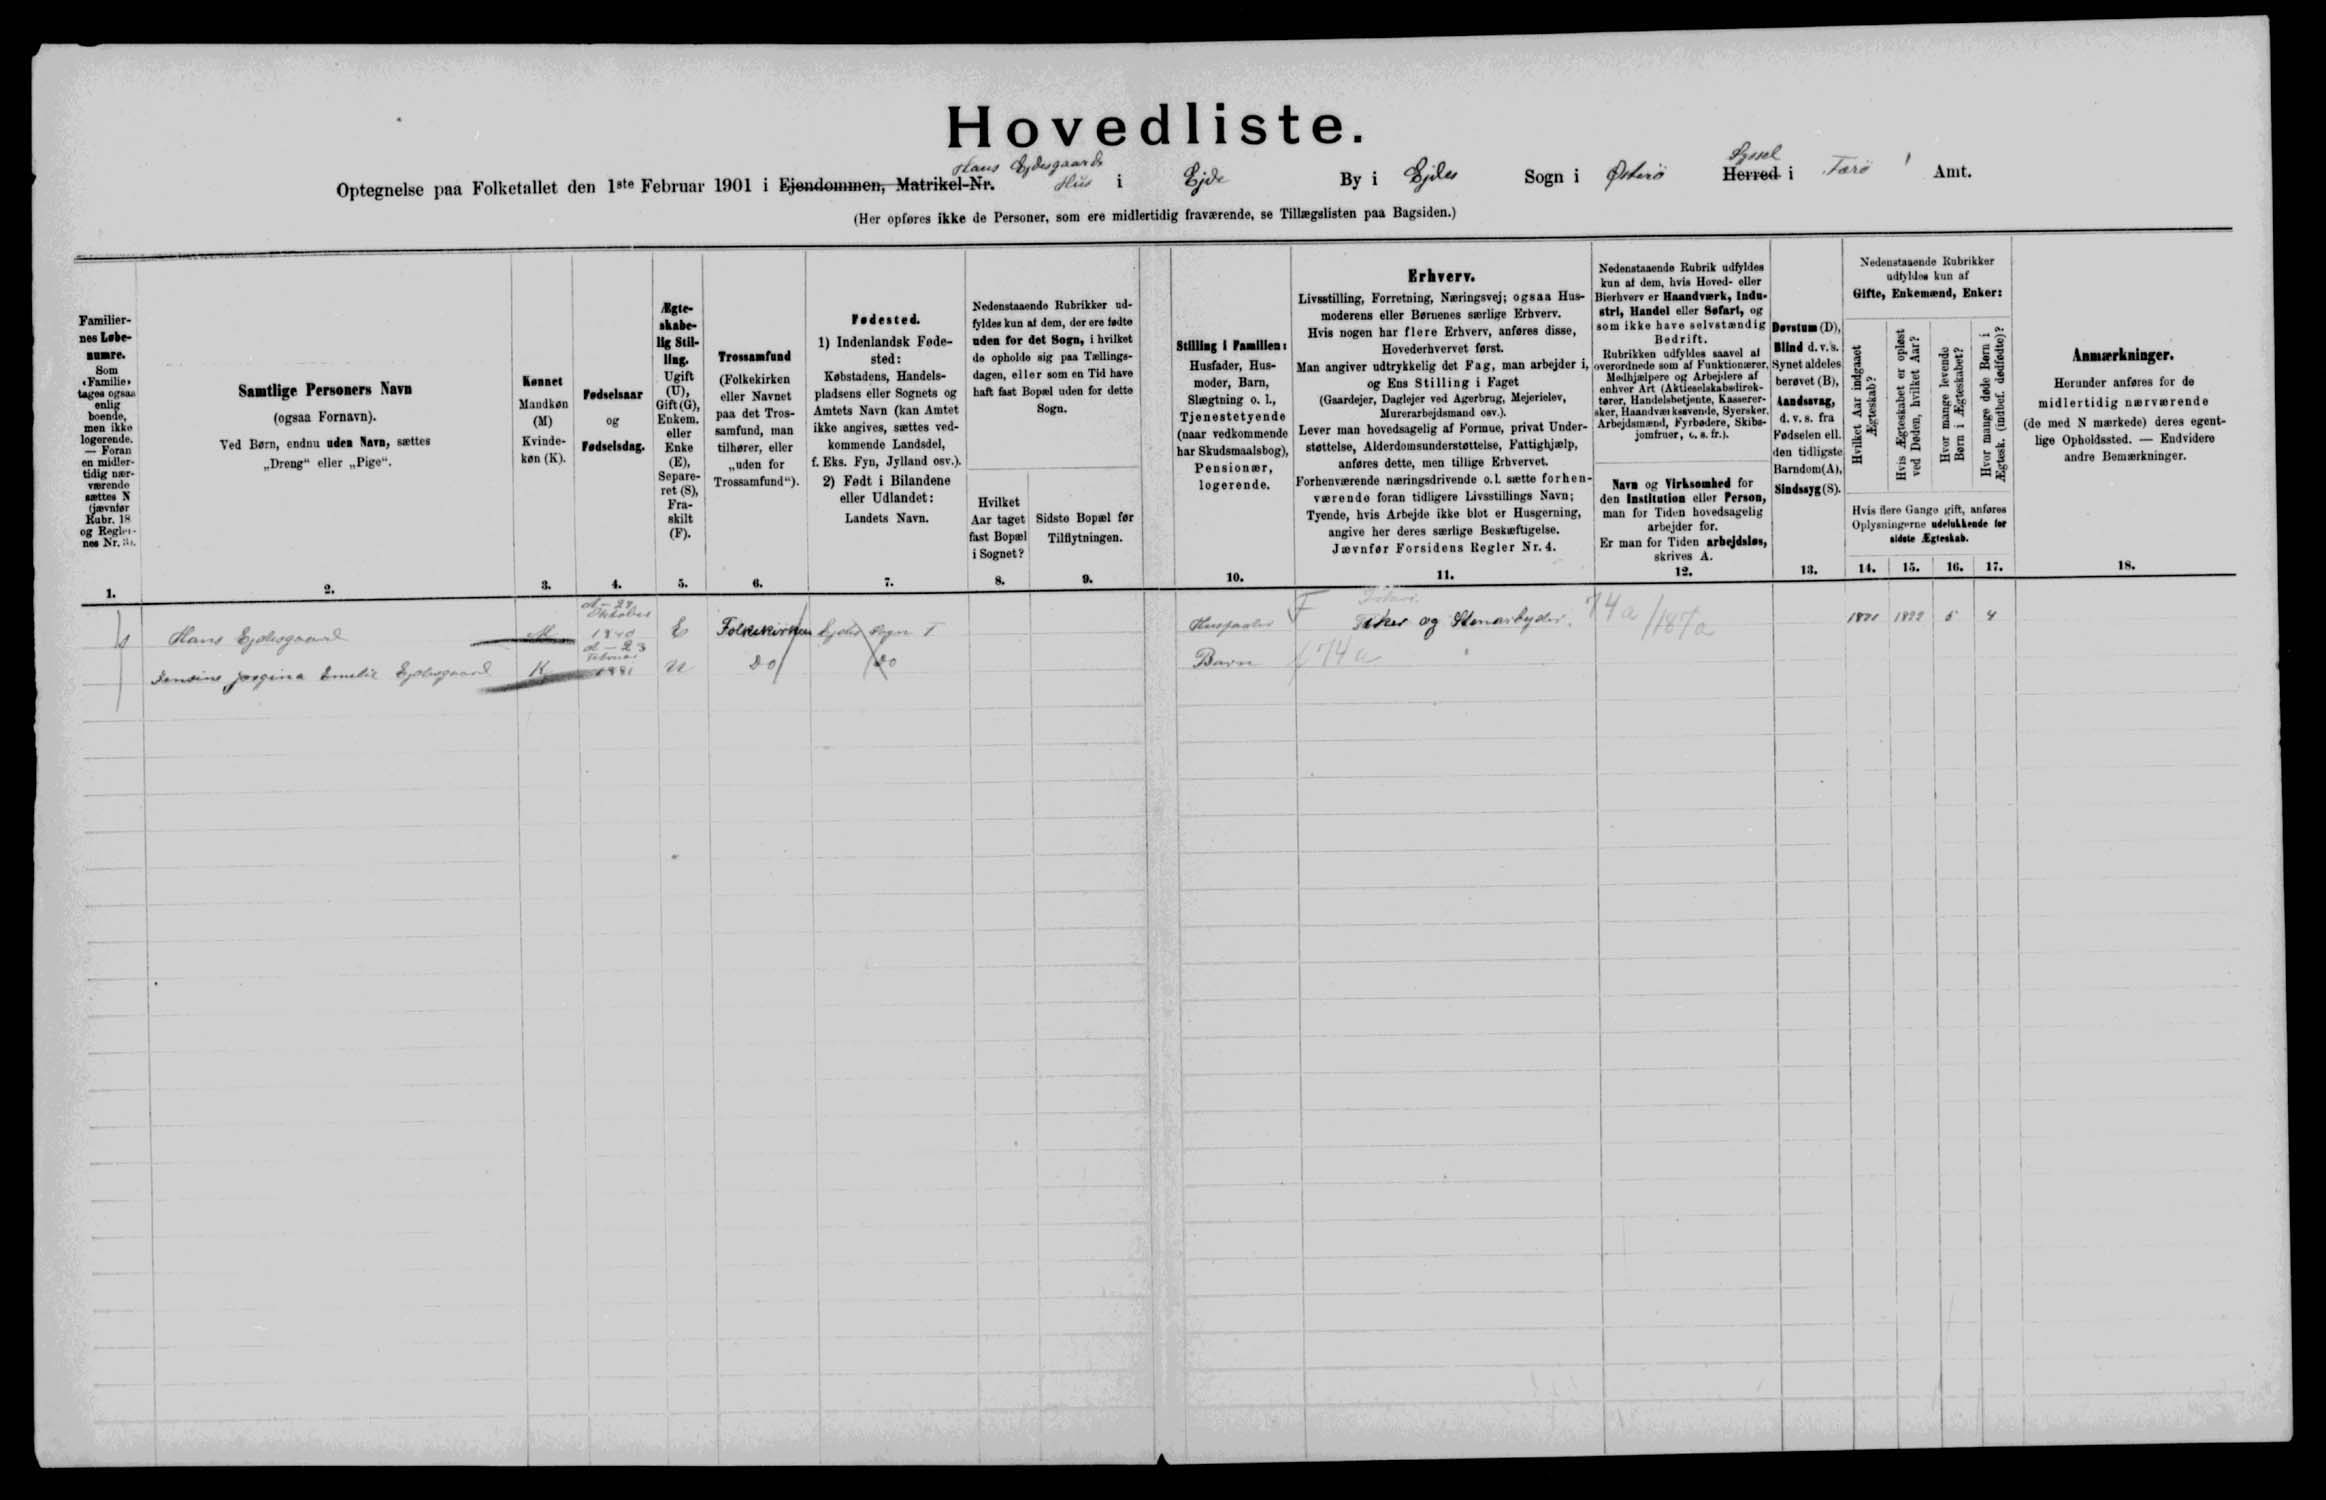 Hovedliste.
Hans Ejdesgaards
Syssel
Optegnelse paa Folketallet den 1ste Februar 1901 i Ejendommen, Matrikel-Nr. Hus i Ejde By i Ejdes Sogn i Østerø Herred i Færø Amt.
(Her opføres ikke de Personer, som ere midlertidig fraværende, se Tillægslisten paa Bagsiden.)
Familier-
nes Løbe-
numre.
Som
"Familie"
tages ogsaa
enlig
boende,
men ikke
logerende.
— Foran
en midler-
tidig nær-
værende
sættes N
(jævnfør
Rubr. 18
og Regler-
nes Nr. 3).
1.
Samtlige Personers Navn
(ogsaa Fornavn).
Ved Børn, endnu uden Navn, sættes
„Dreng“ eller „Pige“.
2.
Kønnet
Mandkøn
(M)
Kvinde-
køn (K).
3.
Fødselsaar
og
Fødselsdag.
4.
Ægte-
skabe-
lig Stil-
ling.
Ugift
(U),
Gift (G),
Enkem.
eller
Enke
(E),
Separe-
ret (S),
Fra-
skilt
(F).
5.
Trossamfund
(Folkekirken
eller Navnet
paa det Tros-
samfund, man
tilhører, eller
„uden for
Trossamfund“).
6.
Fødested.
1) Indenlandsk Føde-
sted:
Købstadens, Handels-
pladsens eller Sognets og
Amtets Navn (kan Amtet
ikke angives, sættes ved-
kommende Landsdel,
f. Eks. Fyn, Jylland osv.).
2) Født i Bilandene
eller Udlandet:
Landets Navn.
7.
Nedenstaaende Rubrikker ud-
fyldes kun af dem, der ere fødte
uden for det Sogn, i hvilket
de opholde sig paa Tællings-
dagen, eller som en Tid have
haft fast Bopæl uden for dette
Sogn.
Hvilket
Aar taget
fast Bopæl
i Sognet?
8.
Sidste Bopæl før
Tilflytningen.
9.
Stilling i Familien:
Husfader, Hus-
moder, Barn,
Slægtning o. l.,
Tjenestetyende
(naar vedkommende
har Skudsmaalsbog),
Pensionær,
logerende.
10.
Erhverv.
Livsstilling, Forretning, Næringsvej; ogsaa Hus-
moderens eller Børnenes særlige Erhverv.
Hvis nogen har flere Erhverv, anføres disse,
Hovederhvervet først.
Man angiver udtrykkelig det Fag, man arbejder i,
og Ens Stilling i Faget
(Gaardejer, Daglejer ved Agerbrug, Mejerielev,
Murerarbejdsmand osv.).
Lever man hovedsagelig af Formue, privat Under-
støttelse, Alderdomsunderstøttelse, Fattighjælp,
anføres dette, men tillige Erhvervet.
Forhenværende næringsdrivende o. l. sætte forhen-
værende foran tidligere Livsstillings Navn;
Tyende, hvis Arbejde ikke blot er Husgerning,
angive her deres særlige Beskæftigelse.
Jævnfør Forsidens Regler Nr. 4.
11.
Nedenstaaende Rubrik udfyldes
kun af dem, hvis Hoved- eller
Bierhverv er Haandværk, Indu-
stri, Handel eller Søfart, og
som ikke have selvstændig
Bedrift.
Rubrikken udfyldes saavel af
overordnede som af Funktionærer,
Medhjælpere og Arbejdere af
enhver Art (Aktieselskabsdirek-
tører, Handelsbetjente, Kasserer-
sker, Haandværkssvende, Syersker,
Arbejdsmænd, Fyrbødere, Skibs-
jomfruer, o. s. fr.).
Navn og Virksomhed for
den Institution eller Person,
man for Tiden hovedsagelig
arbejder for.
Er man for Tiden arbejdsløs,
skrives A.
12.
Døvstum (D),
Blind d. v. s.
Synet aldeles
berøvet (B),
Aandssvag,
d. v. s. fra
Fødselen ell.
den tidligste
Barndom (A),
Sindssyg (S).
13.
Nedenstaaende Rubrikker
udfyldes kun af
Gifte, Enkemænd, Enker:
Hvilket Aar indgaaet
Ægteskab?
Hvis Ægteskabet er opløst
ved Døden, hvilket Aar?
Hvor mange levende
Børn i Ægteskabet?
Hvor mange døde Børn i
Ægtesk. (indbef. dødfødte)?
Hvis flere Gange gift, anføres
Oplysningerne udelukkende for
sidste Ægteskab.
14. 15. 16. 17.
Anmærkninger.
Herunder anføres for de
midlertidig nærværende
(de med N mærkede) deres egent-
lige Opholdssted. — Endvidere
andre Bemærkninger.
18.
d – 29
Oktober
1 Hans Ejdesgaard M 1840 E Folkekirken Ejdes Sogn T Husfader F Fisker og Stenarbejder. 74a/187a 5 4
d – 23
Februar
Jensine Jorgina Emelie Ejdesgaard K 1881 U Do Do Barn 74a